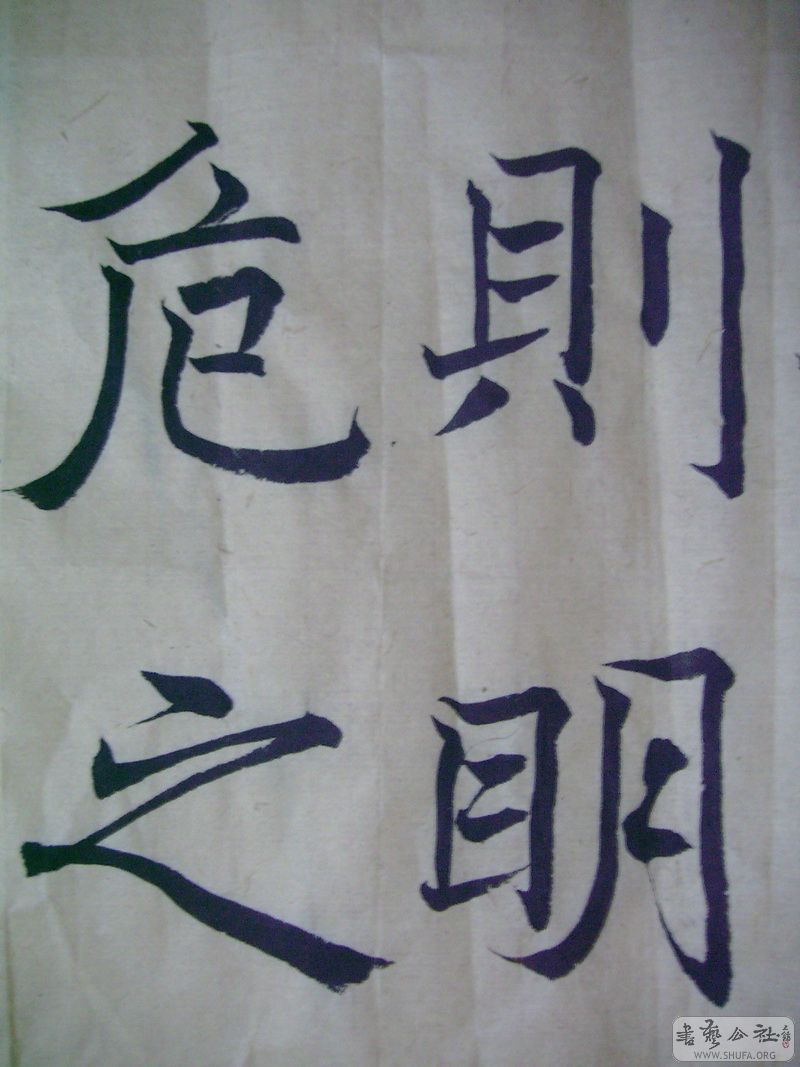 則眀
危之
書藝公社
WWW.SHUFA.ORG